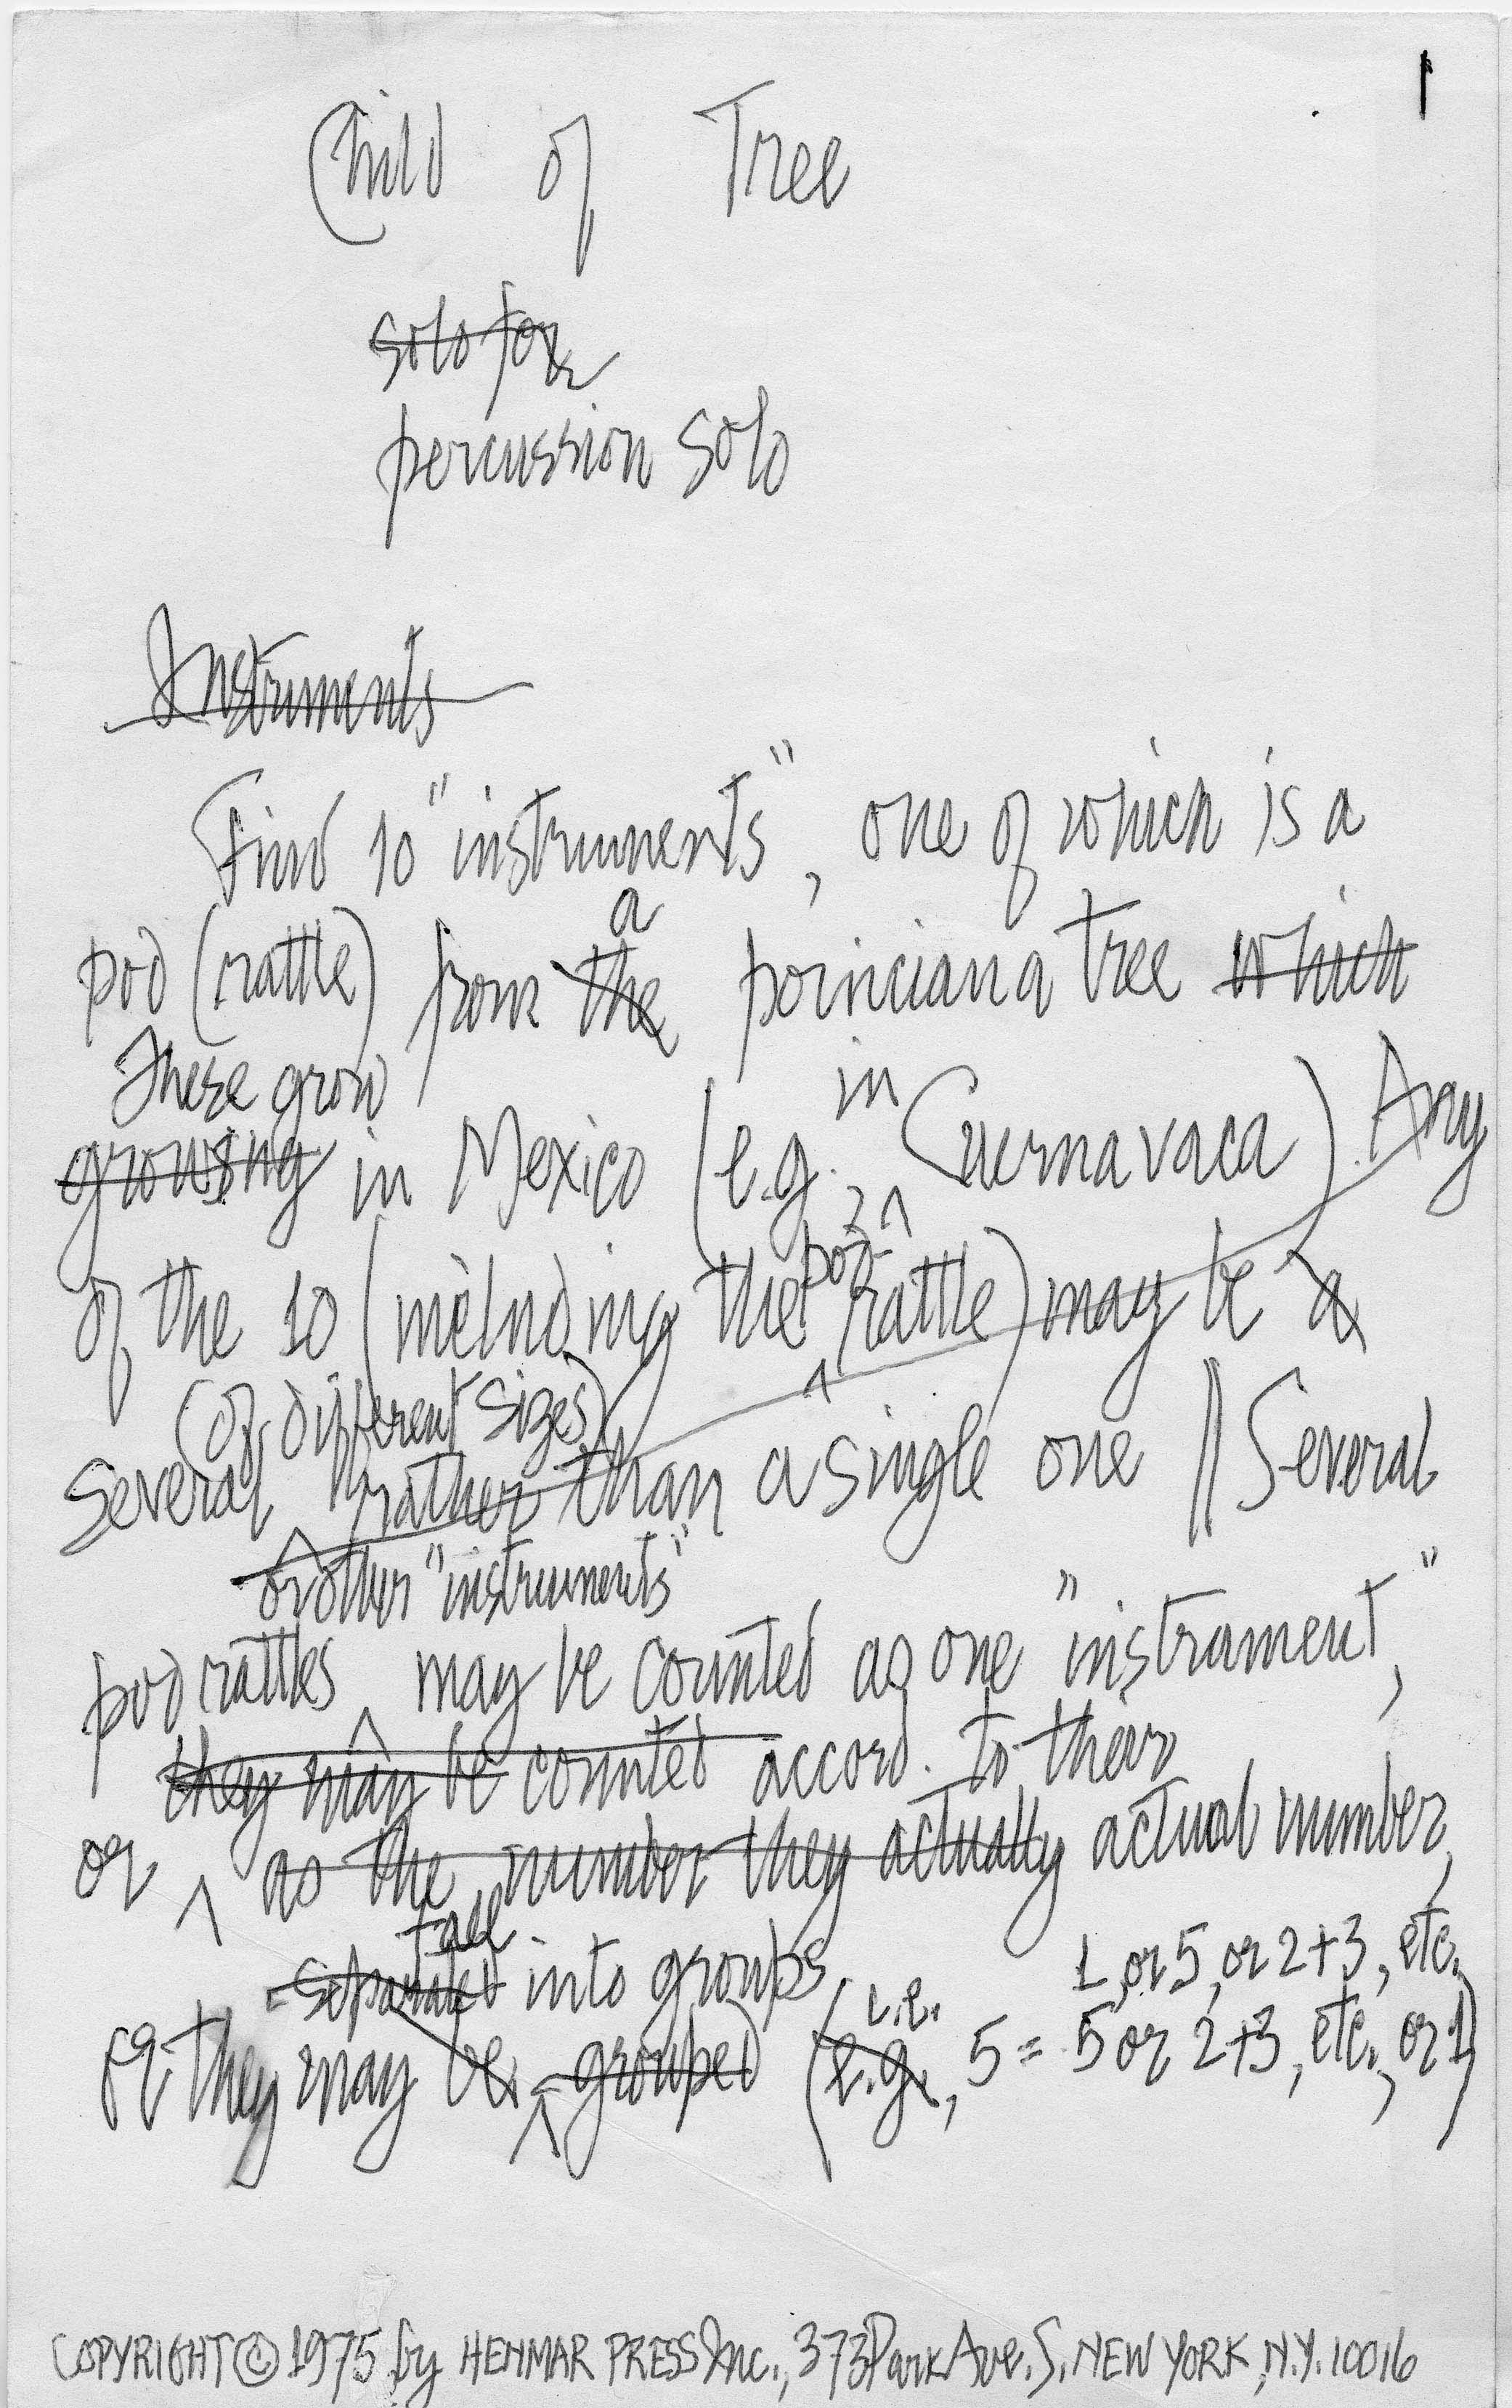 1
Child of Tree
solo for
percussion solo
Instruments
Find 10 "instruments", one of which is a
a
pod (rattle) from the poinciana tree which
These grow
in
growing in Mexico (e.g., Cuernavaca). Any
pod-
of the 10 (including the rattle) may be a
(of different sizes)
several rather than a single one || Several
or other "instruments"
pod rattles may be counted as one "instrument,"
they may be counted accord. to their
or as the number they actually actual number,
fall
separated into groups
i.e. 1, or 5, or 2+3, etc.
or they may be grouped (e.g., 5 = 5 or 2+3, etc., or 1)
COPYRIGHT © 1975 by HENMAR PRESS Inc., 373 Park Ave. S., NEW YORK, N.Y. 10016